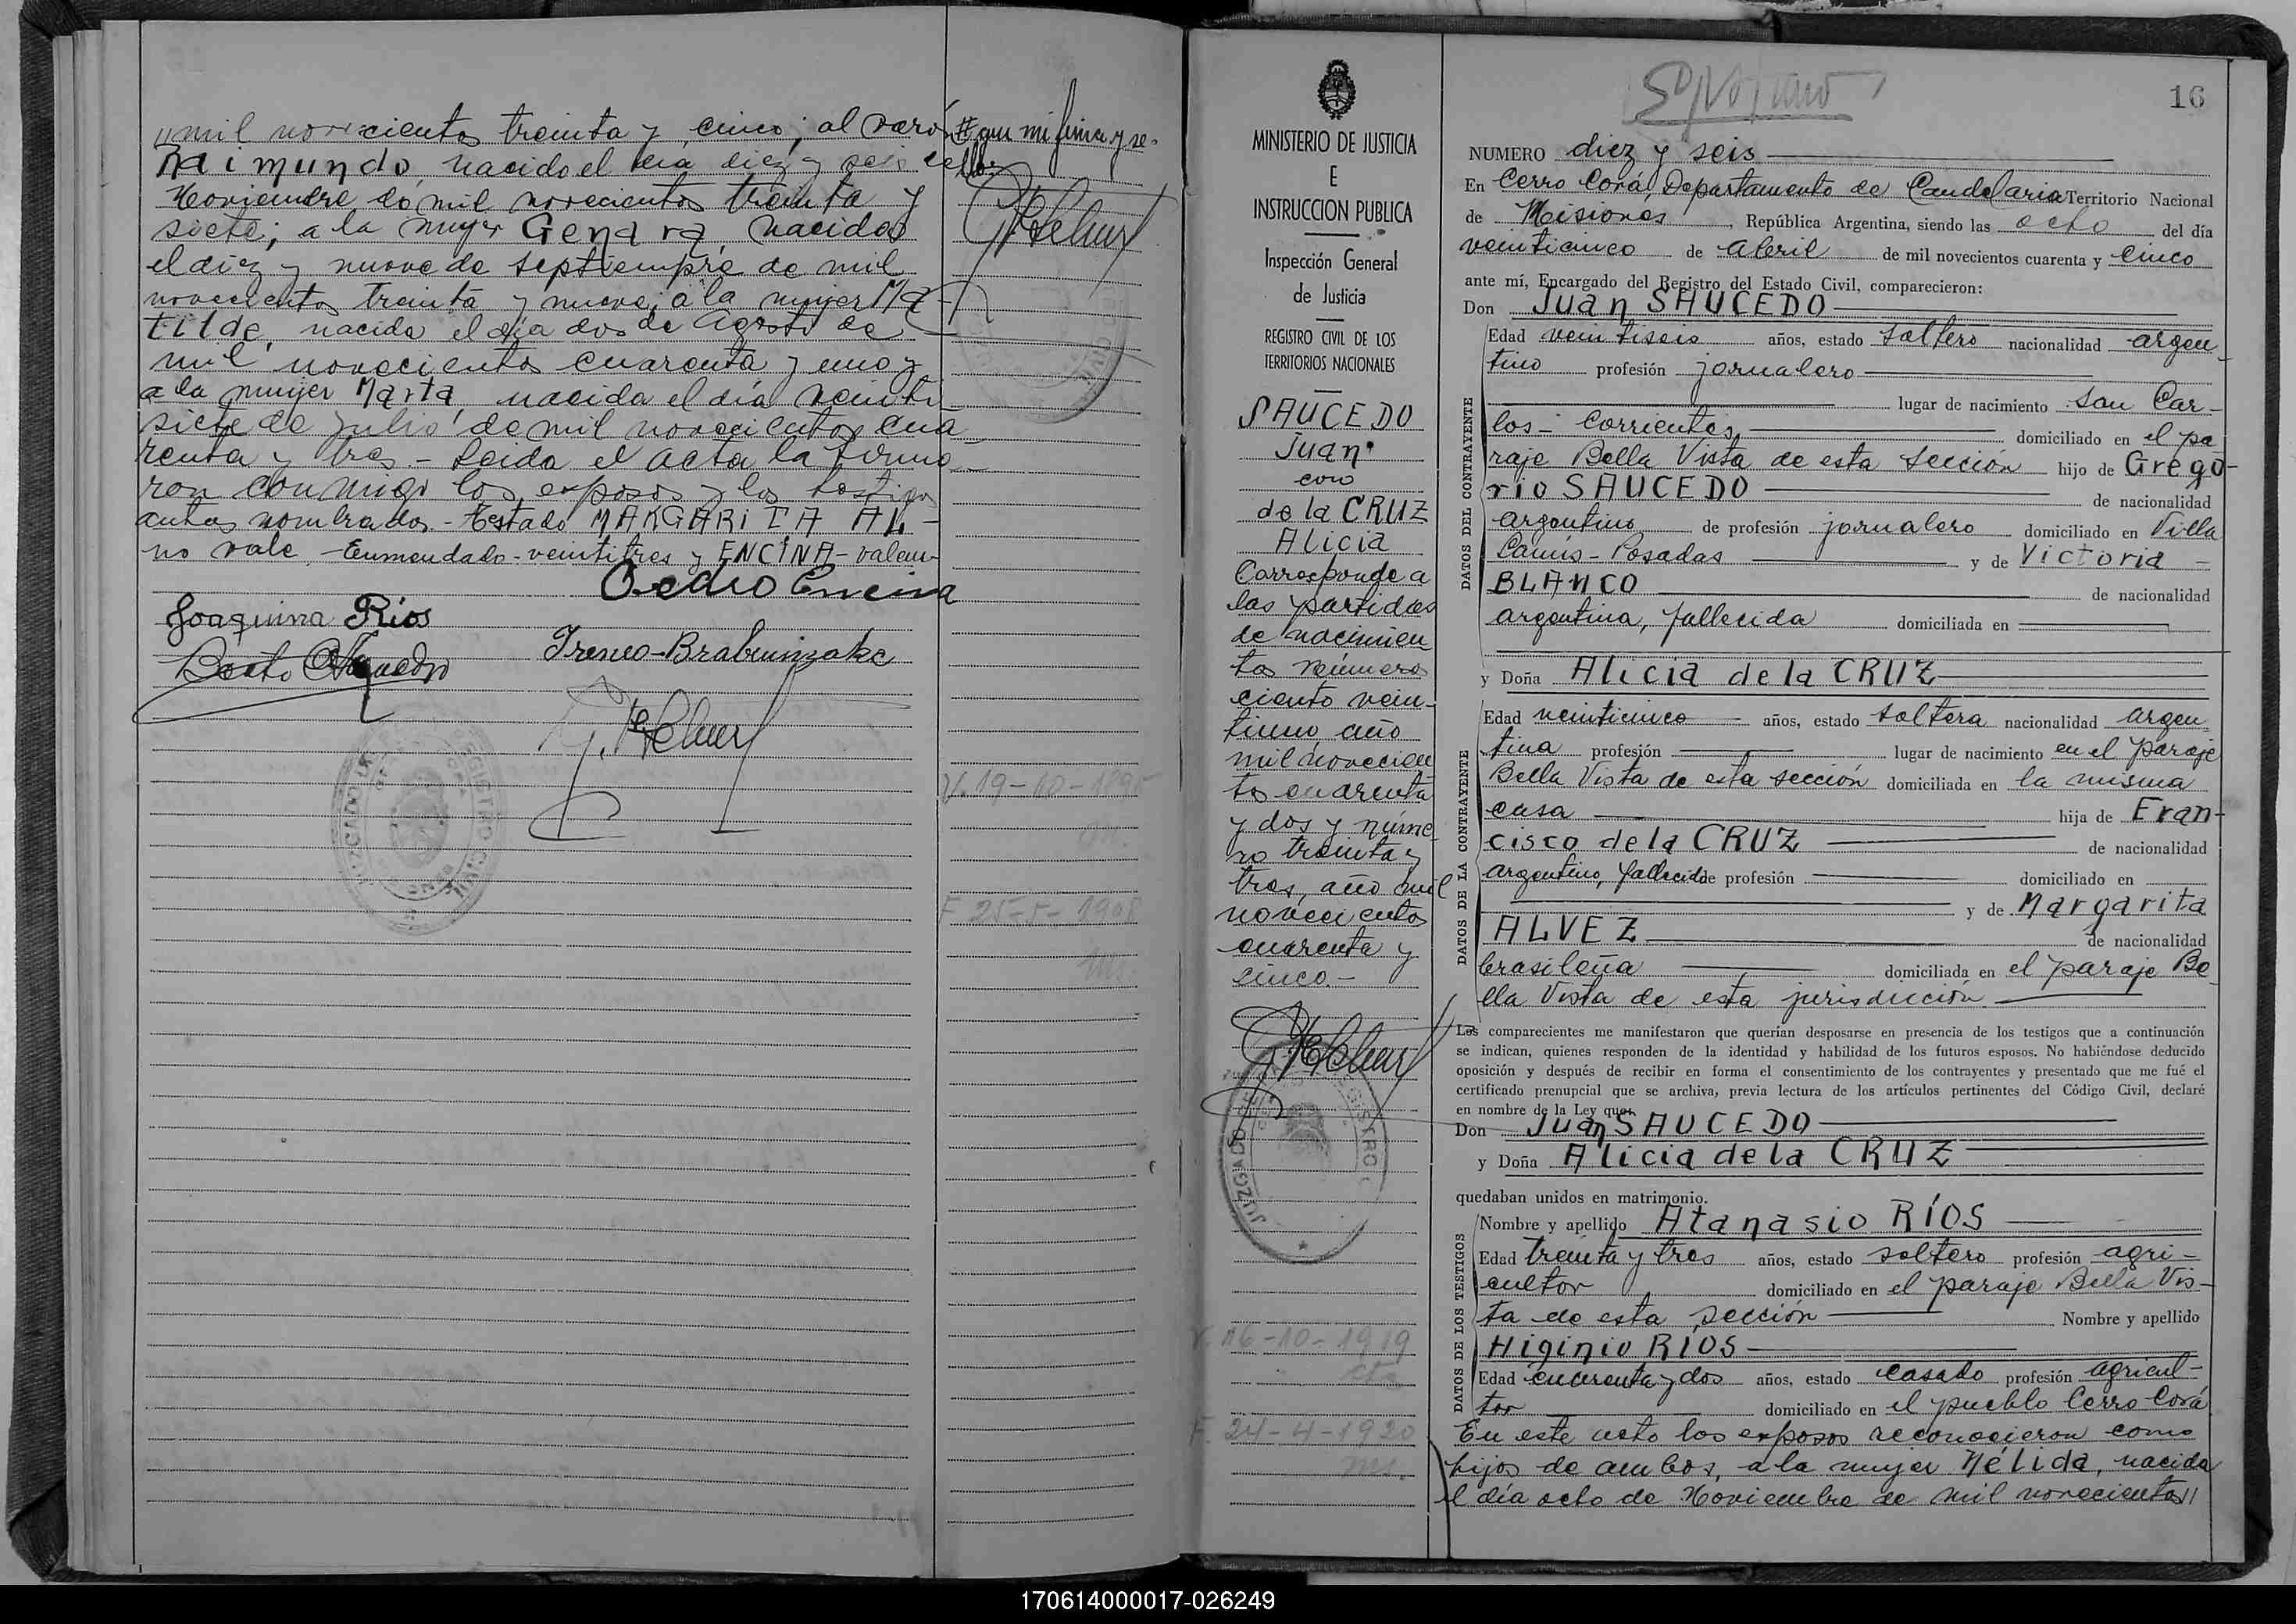 mil novecientos treinta y cinco; al varón
Raimundo, nacido el día diez y seis de
Noviembre de mil novecientos treinta y
siete; a la mujer Genara, nacida
el diez y nueve de septiempre de mil
novecientos treinta y nueve; a la mujer Ma-
tilde, nacida el día dos de Agosto de
mil novecientos cuarenta y uno y
a la mujer Marta, nacida el día veinti-
siete de Julio de mil novecientos cua-
renta y tres.- Leida el acta la firma-
ron conmigo los esposos y los testigos
antes nombrados.- Testado MARGARITA AL-
no vale.- Enmendado-veintitres y ENCINA-valen-
Pedro Encina
Joaquina Ríos
mi firma y se-
llo.
V. 19-10-1895
F 25-5-1908
MINISTERIO DE JUSTICIA
E
INSTRUCCION PUBLICA
Inspección General
de Justicia
REGISTRO CIVIL DE LOS
TERRITORIOS NACIONALES
SAUCEDO
Juan
con
de la CRUZ
Alicia
Corresponde a
las partidas
de nacimien
tos número
ciento vein-
tiuno, año
mil novecien
tos cuarenta
y dos y núme-
ro treinta y
tres, año mil
novecientos
cuarenta y
cinco.-
JUZGADO
REGISTRO
V. 16-10-1919
F. 24-4-1920
16
NUMERO diez y seis
En Cerro Corá, Departamento de Candelaria Territorio Nacional
de Misiones, República Argentina, siendo las ocho del día
veinticinco de Abril de mil novecientos cuarenta y cinco
ante mí, Encargado del Registro del Estado Civil, comparecieron:
Don Juan SAUCEDO
DATOS DEL CONTRAYENTE
Edad veintiseis años, estado soltero nacionalidad argen-
tino profesión jornalero
lugar de nacimiento San Car-
los - Corrientes, domiciliado en el pa
raje Bella Vista de esta sección hijo de Grego-
rio SAUCEDO de nacionalidad
argentino de profesión jornalero domiciliado en Villa
Lanús - Posadas y de Victoria -
BLANCO de nacionalidad
argentina, fallecida domiciliada en
y Doña Alicia de la CRUZ
DATOS DE LA CONTRAYENTE
Edad veinticinco años, estado soltera nacionalidad argen
tina profesión lugar de nacimiento en el paraje
Bella Vista de esta sección domiciliada en la misma
casa hija de Fran-
cisco de la CRUZ de nacionalidad
argentino, fallecido de profesión domiciliado en
y de Margarita
ALVEZ de nacionalidad
brasileña domiciliada en el paraje Be
lla Vista de esta jurisdicción
Los comparecientes me manifestaron que querían desposarse en presencia de los testigos que a continuación
se indican, quienes responden de la identidad y habilidad de los futuros esposos. No habiéndose deducido
oposición y después de recibir en forma el consentimiento de los contrayentes y presentado que me fué el
certificado prenupcial que se archiva, previa lectura de los artículos pertinentes del Código Civil, declaré
en nombre de la Ley que:
Don Juan SAUCEDO
y Doña Alicia de la CRUZ
quedaban unidos en matrimonio.
DATOS DE LOS TESTIGOS
Nombre y apellido Atanasio RÍOS
Edad treinta y tres años, estado soltero profesión agri-
cultor domiciliado en el paraje Bella Vis-
ta de esta sección Nombre y apellido
Higinio RÍOS
Edad cuarenta y dos años, estado casado profesión agricul-
tor domiciliado en el pueblo Cerro Corá
En este acto los esposos reconocieron como
hijos de ambos, a la mujer Nélida, nacida
el día ocho de Noviembre de mil novecientos//
170614000017-026249